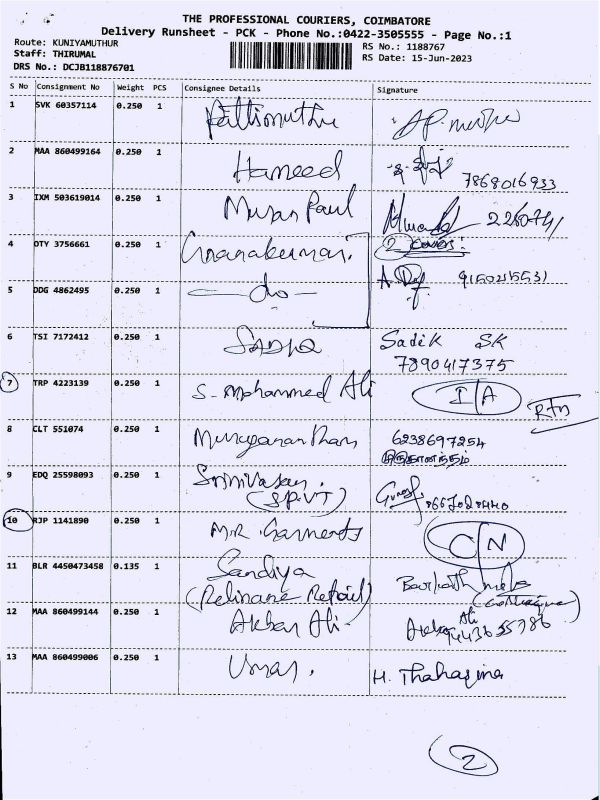 THE PROFESSIONAL COURIERS, COIMBATORE
Delivery Runsheet - PCK - Phone No.:0422-3505555 - Page No.:1
Route: KUNIYAMUTHUR
RS No.: 1188767
Staff: THIRUMAL
RS Date: 15-Jun-2023
DRS No.: DCJB118876701
S No Consignment No Weight PCS Consignee Details Signature
1 SVK 60357114 0.250 1
2 MAA 860499164 0.250 1 Hameed 7868016933
3 IXM 503619014 0.250 1 Paul
4 OTY 3756661 0.250 1 Gnanakumar 2 covers.
5 DDG 4862495 0.250 1 - do -
6 TSI 7172412 0.250 1 Sadiq Sadik SK
7890417375
7 TRP 4223139 0.250 1 S. Mohammed Ali I/A
8 CLT 551074 0.250 1 6238697254
9 EDQ 25598093 0.250 1 Srinivasan
(S.P.VT)
10 RJP 1141890 0.250 1 M.R. Garments C/N
11 BLR 4450473458 0.135 1 Sandiya
(Reliance Retail)
12 MAA 860499144 0.250 1 Akbar Ali Akbar Ali
13 MAA 860499006 0.250 1 Umar. H. Thahasina
2